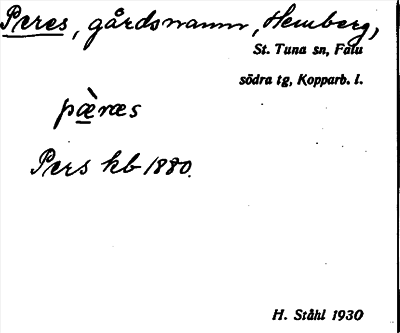 Peres, gårdsnamn, Hemberg,
St. Tuna sn, Falu
södra tg, Kopparb. l.
pæ̀ræs
Pers kb 1880.
H. Ståhl 1930